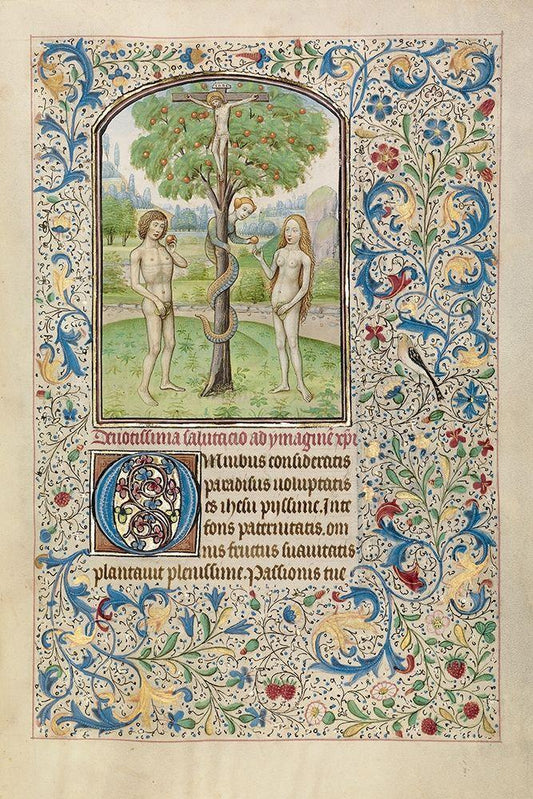 Deuotissima salutacio ad ymaginē xpi
Omnibus consideratis
paradisus uoluptatis
es ihesu pijssime. Inte
fons paternitatis, om
nis fructus suauitatis
plantauit plenissime. Passionis tue